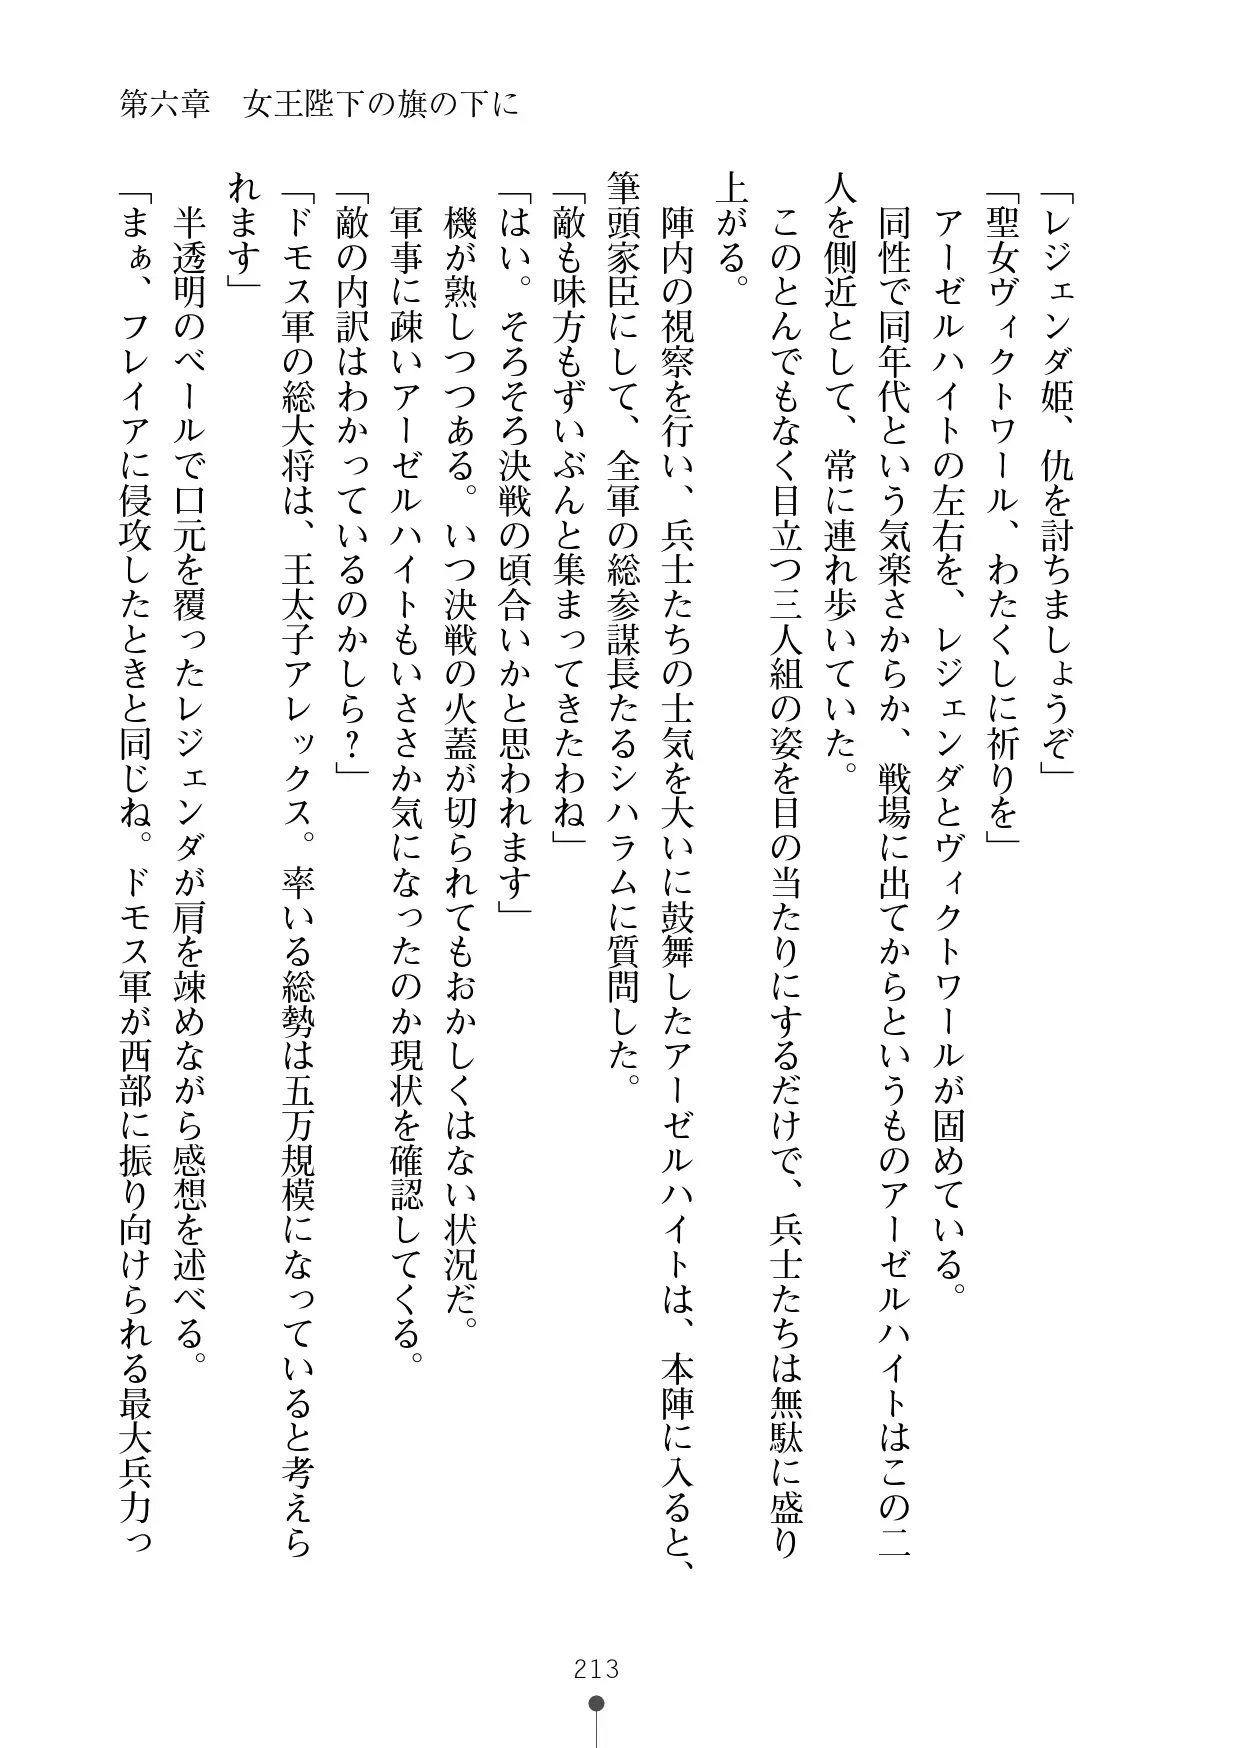 第六章　女王陛下の旗の下に
「レジェンダ姫、仇を討ちましょうぞ」
「聖女ヴィクトワール、わたくしに祈りを」
　アーゼルハイトの左右を、レジェンダとヴィクトワールが固めている。
　同性で同年代という気楽さからか、戦場に出てからというものアーゼルハイトはこの二
人を側近として、常に連れ歩いていた。
　このとんでもなく目立つ三人組の姿を目の当たりにするだけで、兵士たちは無駄に盛り
上がる。
　陣内の視察を行い、兵士たちの士気を大いに鼓舞したアーゼルハイトは、本陣に入ると、
筆頭家臣にして、全軍の総参謀長たるシハラムに質問した。
「敵も味方もずいぶんと集まってきたわね」
「はい。そろそろ決戦の頃合いかと思われます」
　機が熟しつつある。いつ決戦の火蓋が切られてもおかしくはない状況だ。
　軍事に疎いアーゼルハイトもいささか気になったのか現状を確認してくる。
「敵の内訳はわかっているのかしら？」
「ドモス軍の総大将は、王太子アレックス。率いる総勢は五万規模になっていると考えら
れます」
　半透明のベールで口元を覆ったレジェンダが肩を竦めながら感想を述べる。
「まぁ、フレイアに侵攻したときと同じね。ドモス軍が西部に振り向けられる最大兵力っ
213